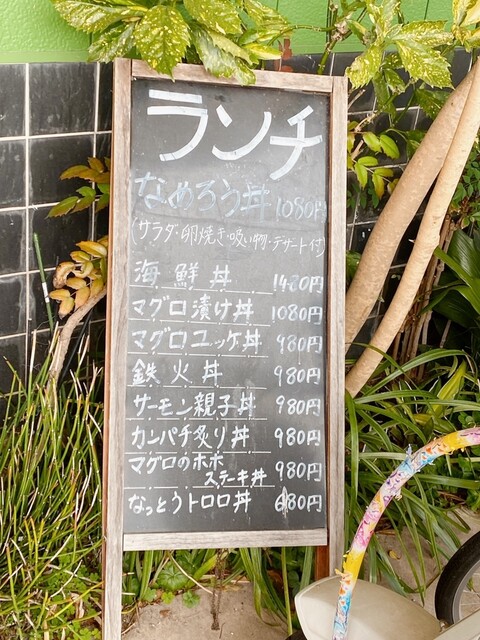 ランチ
なめろう丼 1080円
(サラダ・卵焼き・吸い物・デザート付)
海鮮丼 1480円
マグロ漬け丼 1080円
マグロユッケ丼 980円
鉄火丼 980円
サーモン親子丼 980円
カンパチ炙り丼 980円
マグロのホホ
ステーキ丼 980円
なっとうトロロ丼